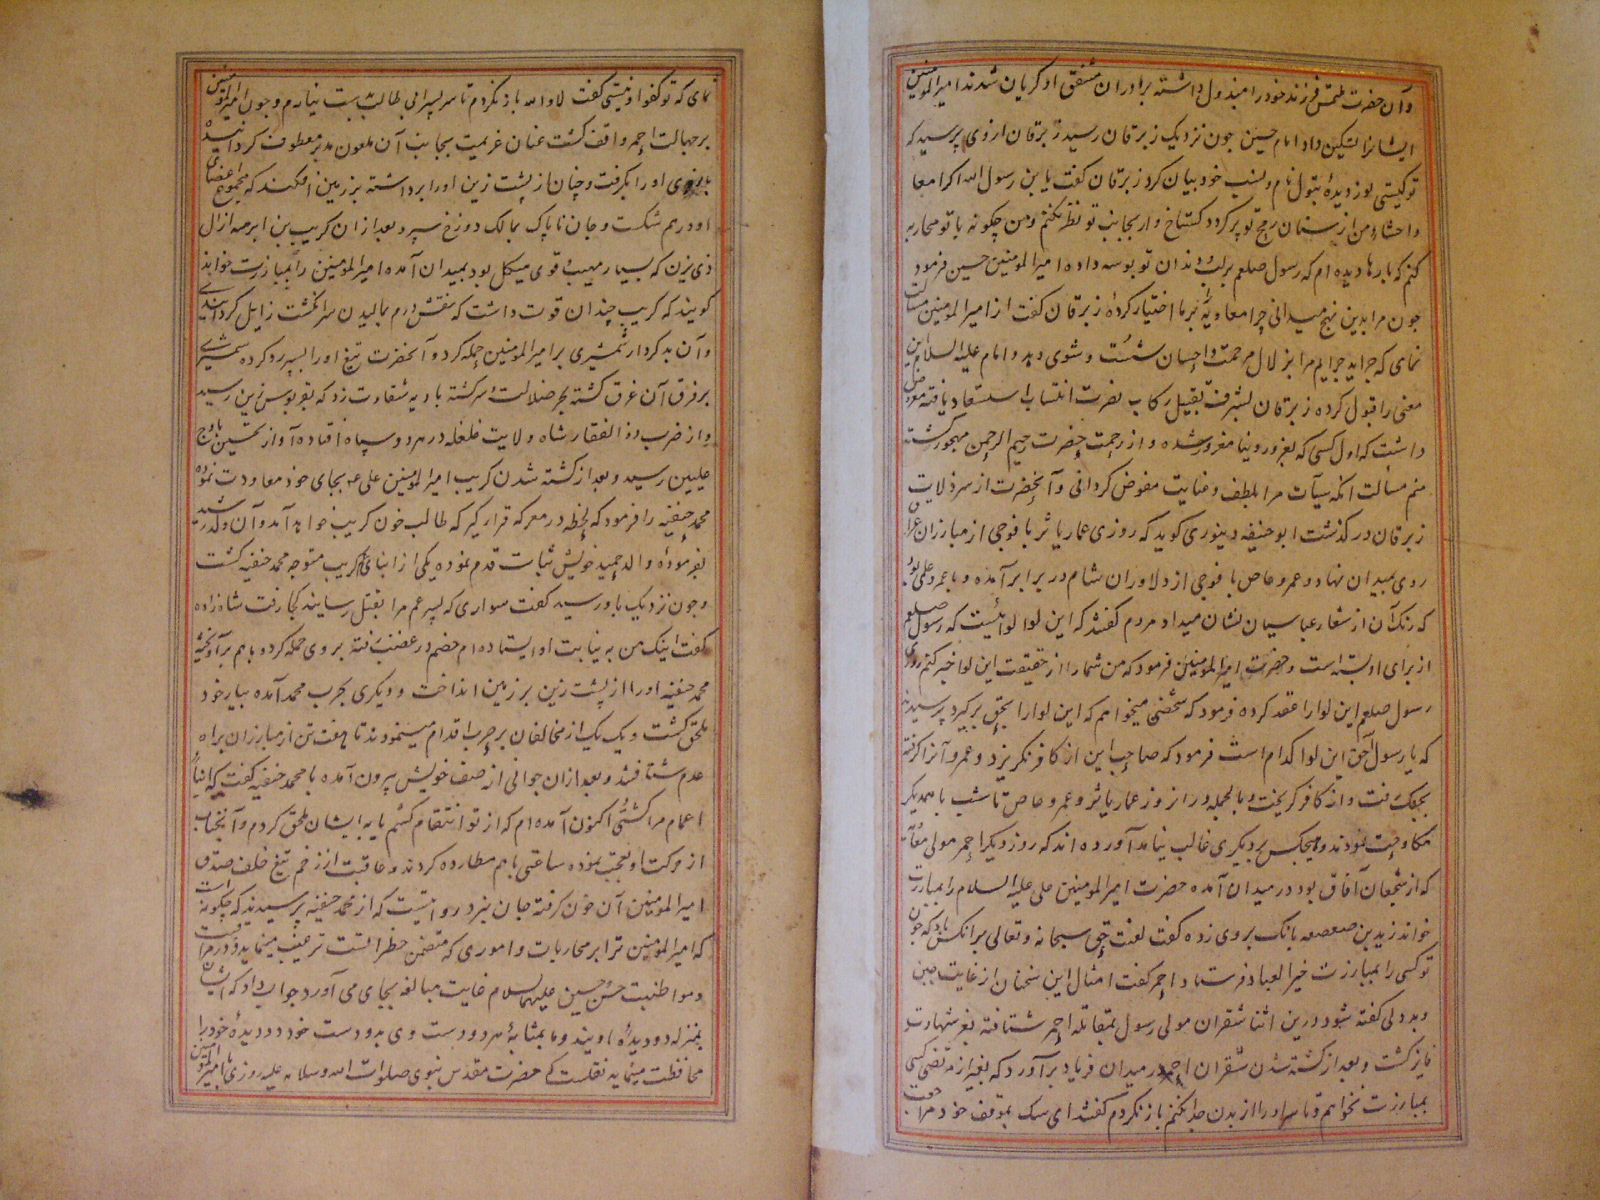 وآن حضرت ملتمس فرزند خود را مبذول داشته برادران مشفق او گریان شدند امیرالمومنین
ایشانرا تسکین داد امام حسین چون نزدیک زبرقان رسید زبرقان از وی پرسید که
تو کیستی نور دیدهٔ بتول نام و نسب خود بیان کرد زبرقان گفت یا بن رسول الله اکرا معا
واحشاء من از سنان رمح تو پر کردد کستاخ وار بجانب تو نظر نکنم ومن چکونه با تو محاربه
کنم که بارها دیده ام که رسول صلعم بر لب و دندان تو بوسه داده امیرالمومنین حسین فرمود
چون مرا بدین نهج میدانی چرا معاویه را بر ما اختیار کردهٔ زبرقان کفت از امیرالمومنین
نمای که جراید جرایم مرا بزلال مرحمت و احسان شست و شوی دهد و امام علیه السلام این
معنی را قبول کرده زبرقان بشرف تقبیل رکاب نصرت انتساب استسعاد یافته معروض
داشت که اول کسی که بغرور دنیا مغرور شده و از رحمت حضرت رحیم الرحمن مهجور کشته
منم مسالت آنکه سیآت مرا بلطف و عنایت مفوض کردانی و آنحضرت از سر ذلایت
زبرقان در کذشت ابو حنیفه دینوری کوید که روزی عمار یاسر با فوجی از مبارزان عراق
روی بمیدان نهاد و عمرو عاص با فوجی از دلاوران شام در برابر آمده و با عمرو علمی بود
که رنک آن از شعار عباسیان نشان میداد مردم کفتند که این لوا لوائیست که رسول صلعم
از برای او بسته است و حضرت امیرالمومنین فرمود که من شما را از حقیقت این لوا خبر کنم روزی
رسول صلعم این لوا را عقد کرده فرمود که شخصی میخواهم که این لوا را بحق بر کیرد پرسیدند
که یا رسول حق این لوا کدام است فرمود که صاحب این از کافر نکریزد و عمرو آنرا کرفته
بجنک رفت و از کافر کریخت و بالجمله در ان روز عمار یاسر و عمرو عاص تا شب با همدیکر
مکاوحت نمودند و هیچکس بر دیکری غالب نیامد آورده اند که روز دیکر احمر مولی
که از شجعان آفاق بود در میدان آمده حضرت امیرالمومنین علی علیه السلام را بمبارزت
خواند زید بن صعصعه بانک بروی زده کفت لعنت حق سبحانه و تعالی بر انکس باد که چون
تو کسی را بمبارزت خیر العباد فرستاد احمر کفت امثال این سخنان از غایت جبن
و بد دلی کفته شود درین اثنا شقران مولی رسول بمقابله احمر شتافته بعز شهادت
فایز کشت و بعد از کشته شدن شقران احمر در میدان فریاد بر آورد که بغیر از مرتضی کسی
بمبارزت نخواهم و تا سر او را از بدن جدا نکنم باز نکردم کفتند ای سک بموقف خود مراجعت
نمای که تو کفو او نیستی کفت لا والله باز نکردم تا سر پسر ابی طالب بدست نیارم و چون امیرالمومنین
بر جهالت احمر واقف کشت عنان عزیمت بجانب آن ملعون مدبر معطوف کردانید
بازوی او را بکرفت و چنان از پشت زین او را برداشته بر زمین افکند که مجموع اعضای
او درهم شکست و جان ناپاک بمالک دوزخ سپرد بعد از ان کریب بن ابرهه از آل
ذی یزن که بسیار مهیب و قوی هیکل بود بمیدان آمده امیرالمومنین را بمبارزت خواند
کویند که کریب چندان قوت داشت که نقش درم بمالیدن سر انکشت زایل کردانیدی
و آن بدکردار شمشیری بر امیرالمومنین حمله کرد و آنحضرت تیغ او را بسپر رد کرده شمشیری
بر فرق آن غرق کشته بحر ضلالت و سرکشته بادیه شقاوت زد که بقربوس زین رسید
و از ضرب ذو الفقار شاه ولایت غلغله در هر دو سپاه افتاده آواز تحسین باوج
علیین رسید و بعد از کشته شدن کریب امیرالمومنین علی عم بجای خود معاودت نموده
محمد حنفیه را فرمود که لحظه در معرکه قرار کیر که طالب خون کریب خواهد آمد و آن
بفرمودهٔ والد حمید خویش ثبات قدم نموده یکی از ابنای عم کریب متوجه محمد حنفیه کشت
و چون نزدیک باو رسید کفت سواری که پسر عم مرا بقتل رسانید کجا رفت شاه زاده
کفت اینک من به نیابت او ایستاده ام خصم در غضب رفته بر وی حمله کرد و باهم بر آویخته
محمد حنفیه او را از پشت زین بر زمین انداخت و دیکری بحرب محمد آمده بیار خود
ملحق کشت و یک یک از مخالفان بر حرب اقدام مینمودند تا هفت تن از مبارزان براه
عدم شتافتند و بعد از ان جوانی از صف خویش بیرون آمده با محمد حنفیه کفت که
اعمام مرا کشتی اکنون آمده ام که از تو انتقام کشم یا به ایشان ملحق کردم و آنجناب
از حرکت او تعجب نموده ساعتی باهم مطارده کردند و عاقبت از زخم تیغ خلف صدق
امیرالمومنین آن خون کرفته جان نبرد روایتست که از محمد حنفیه پرسیدند که چکونه است
که امیرالمومنین ترا بر محاربات و اموری که متضمن خطر است ترغیب مینماید و در
و مواظبت حسن و حسین علیهما السلام غایت مبالغه بجای می آورد جواب داد که ایشان
بمنزله دو دیدهٔ اویند و ما بمثابهٔ هر دو دست وی بدو دست خود دو دیدهٔ خود را
محافظت مینماید نقلست که حضرت مقدس نبوی صلوات الله و سلامه علیه روزی با امیرالمومنین